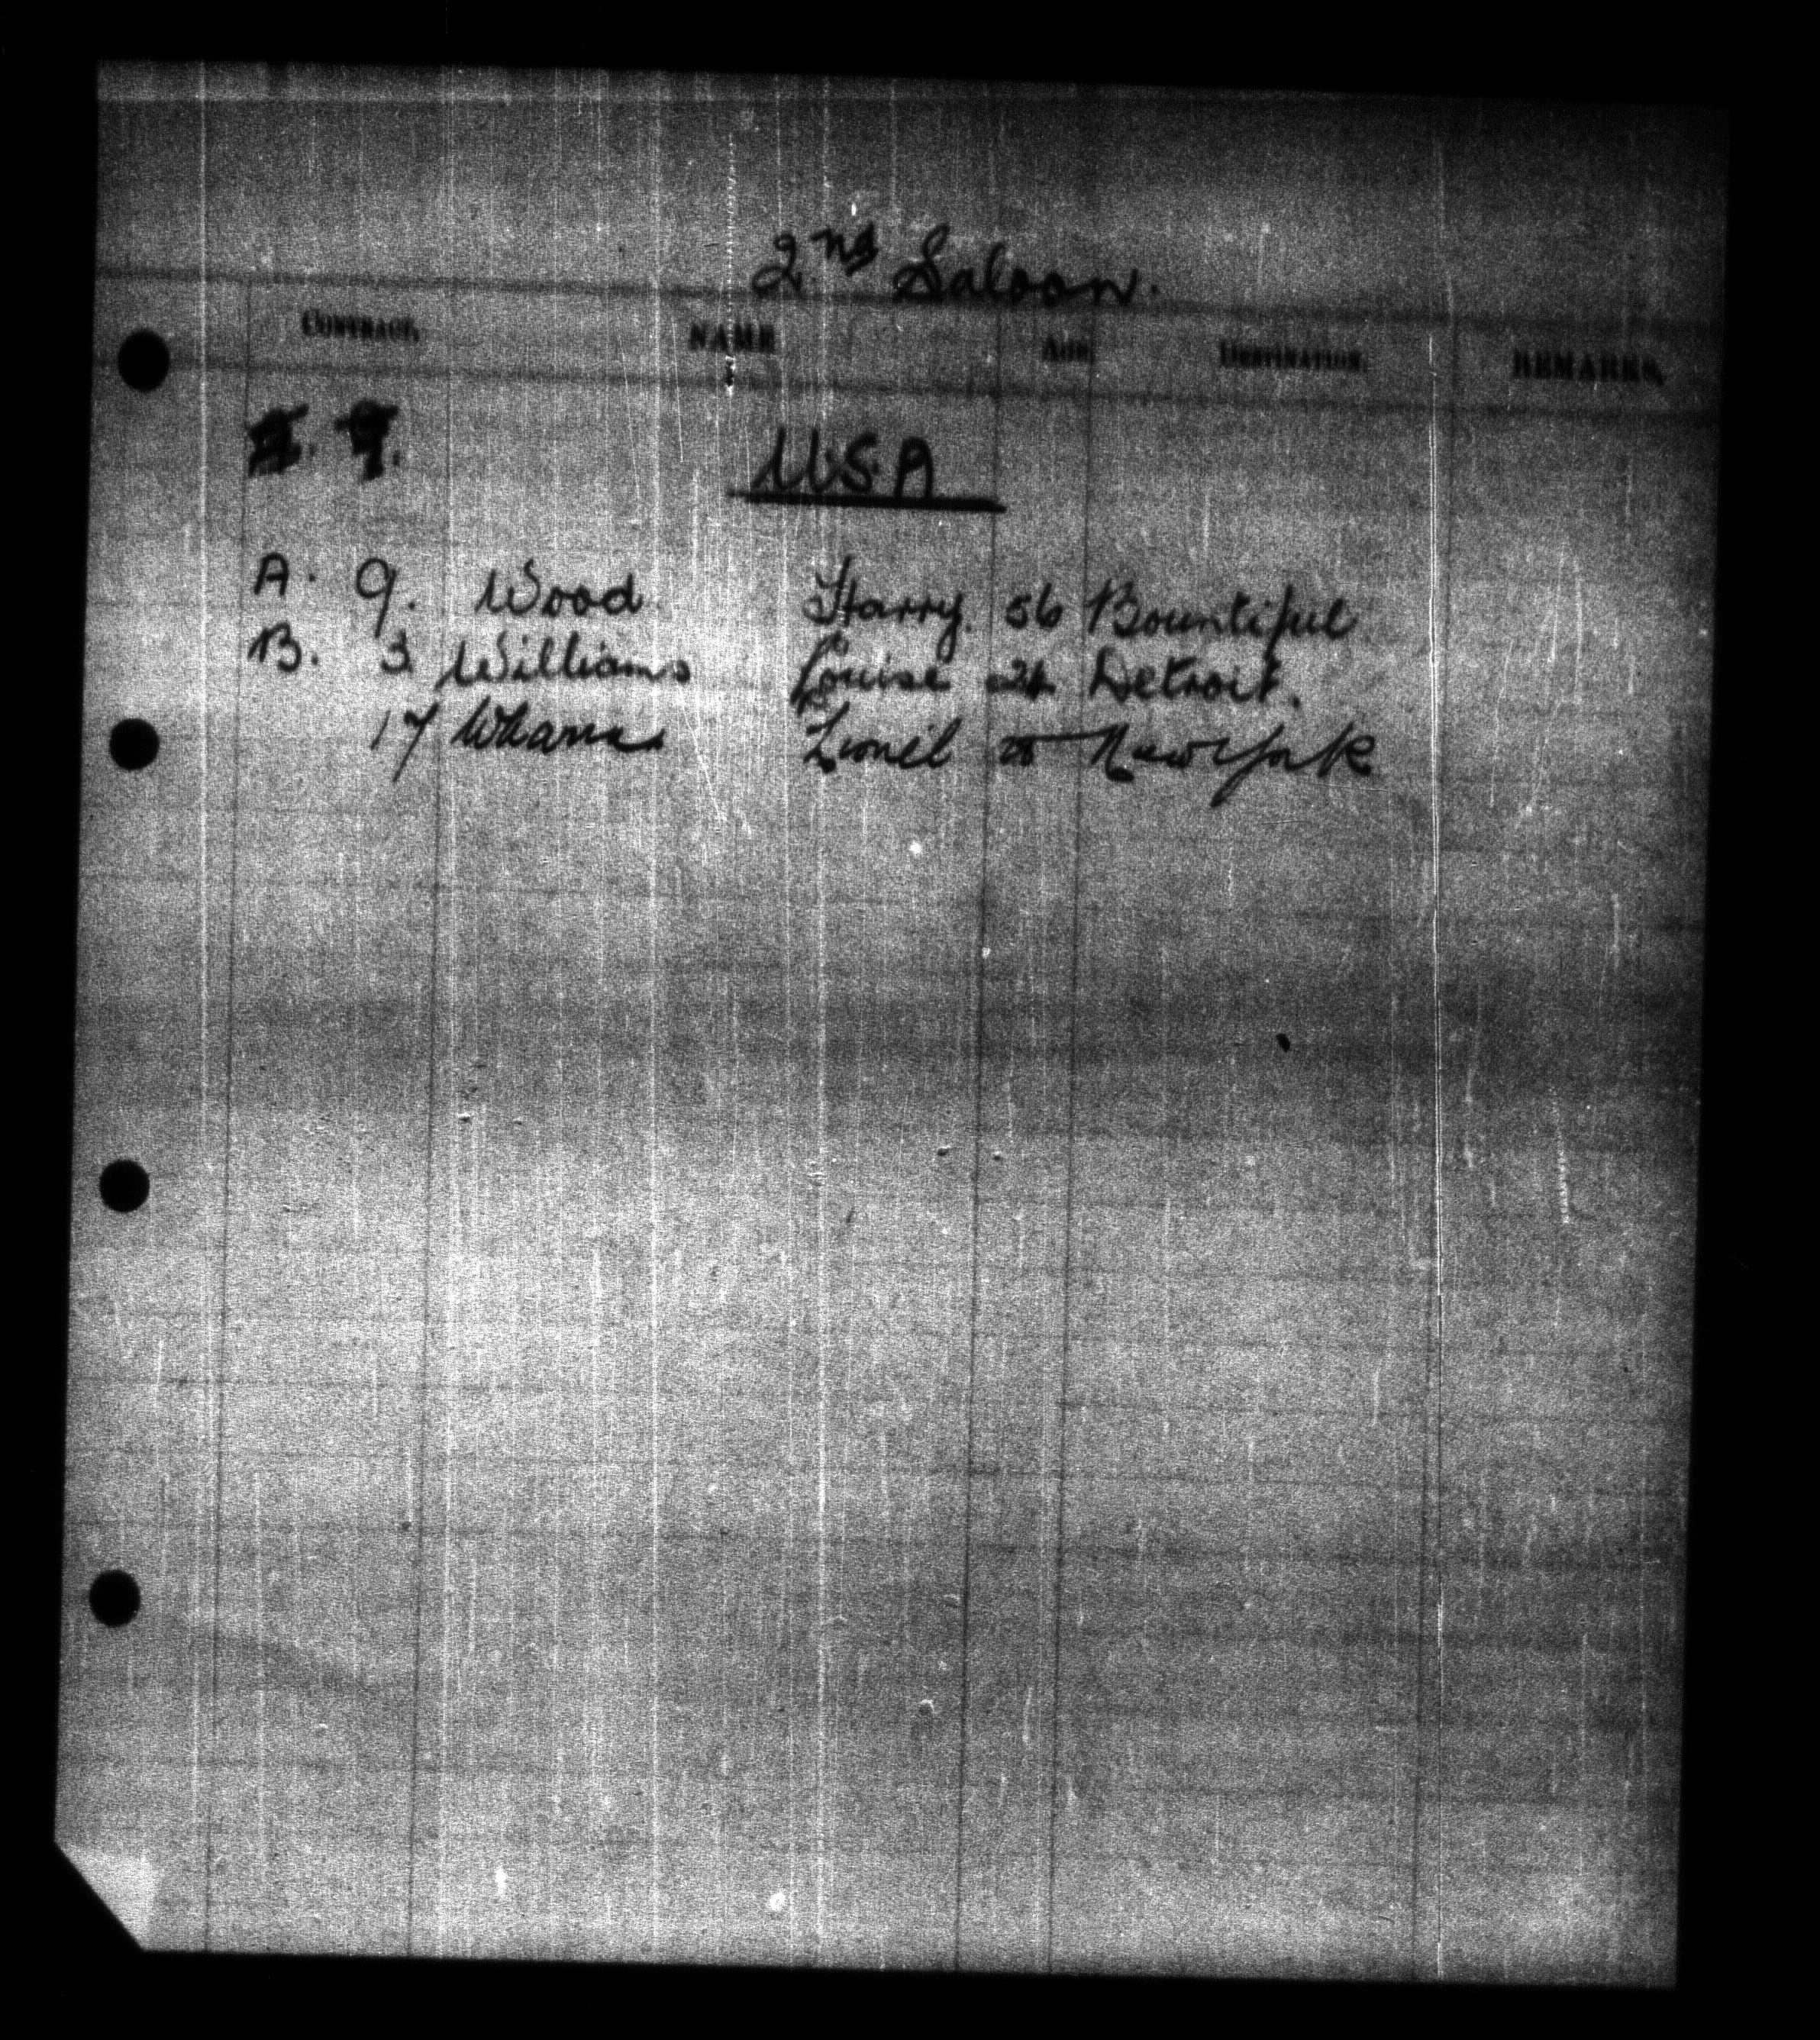 2nd Saloon.
CONTRACT. NAME AGE DESTINATION. REMARKS.
U.S.A
A. 9. Wood Harry. 56 Bountiful
B. 3. Williams Louise 24 Detroit.
17 Lionel New York